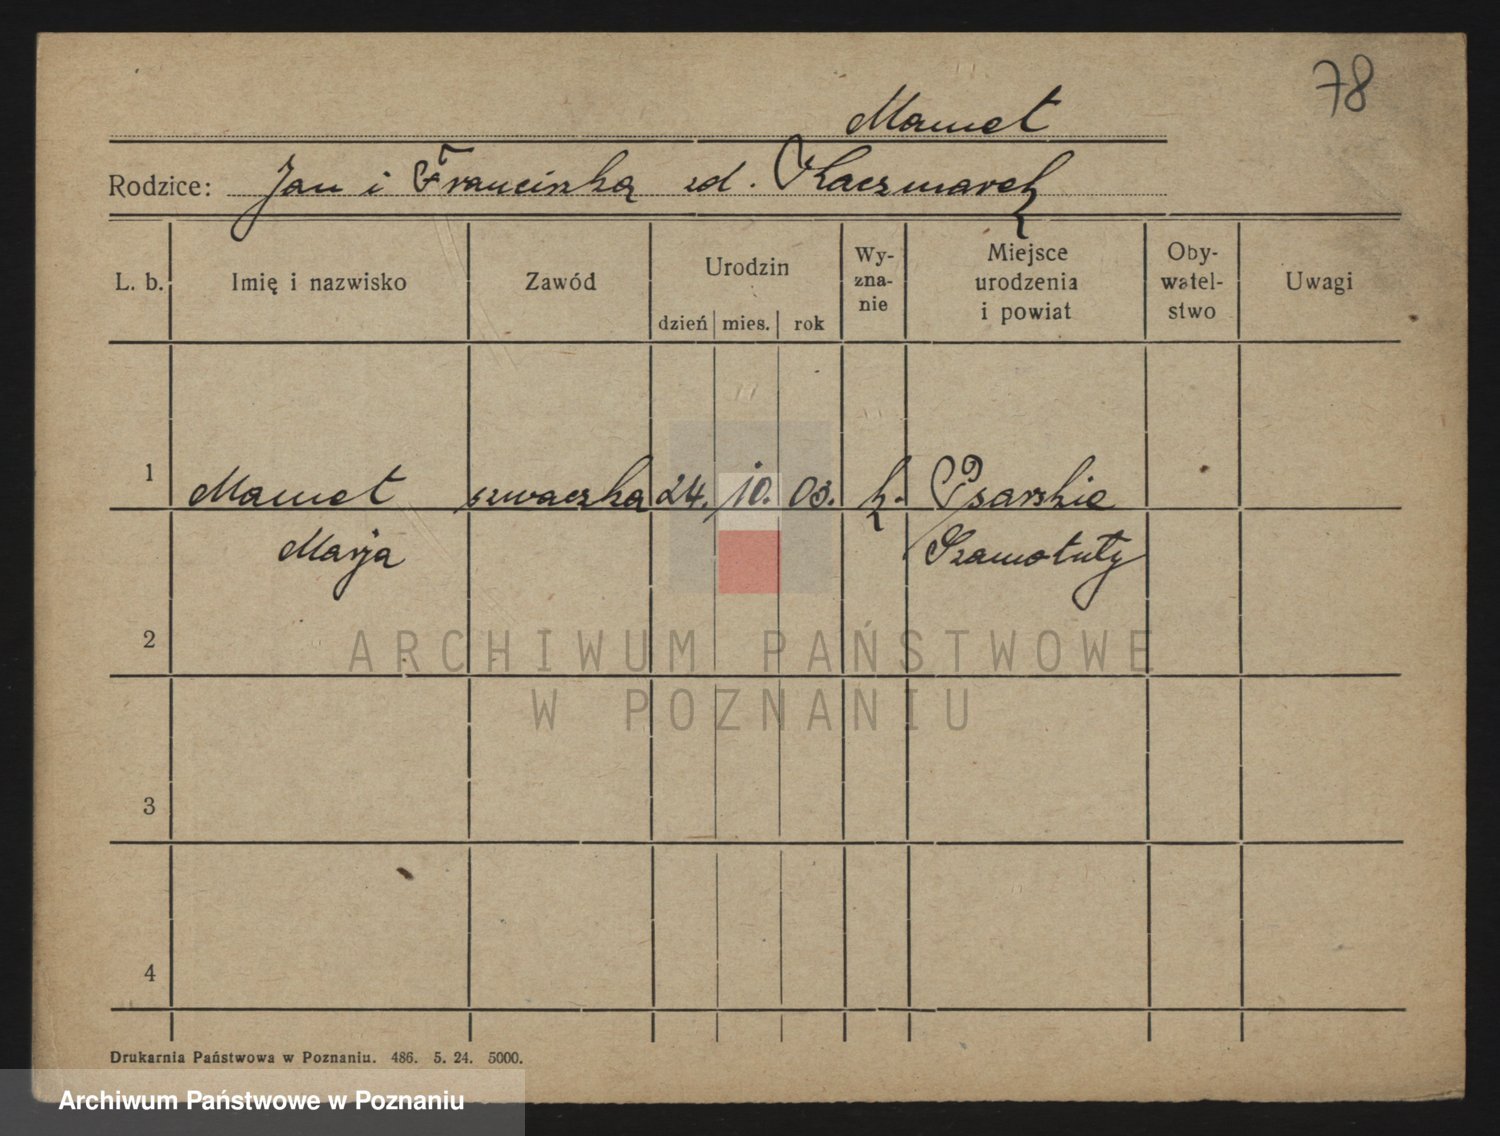 78
Mamet
Rodzice: Jan i Franciszka zd. Kaczmarek
L. b. Imię i nazwisko Zawód Urodzin dzień mies. rok Wy-zna-nie Miejsce urodzenia i powiat Oby-watel-stwo Uwagi
1 Mamet szwaczka 24. 10. 03. k. Psarskie
Marja Szamotuły
2
ARCHIWUM PAŃSTWOWE
W POZNANIU
3
4
Drukarnia Państwowa w Poznaniu. 486. 5. 24. 5000.
Archiwum Państwowe w Poznaniu